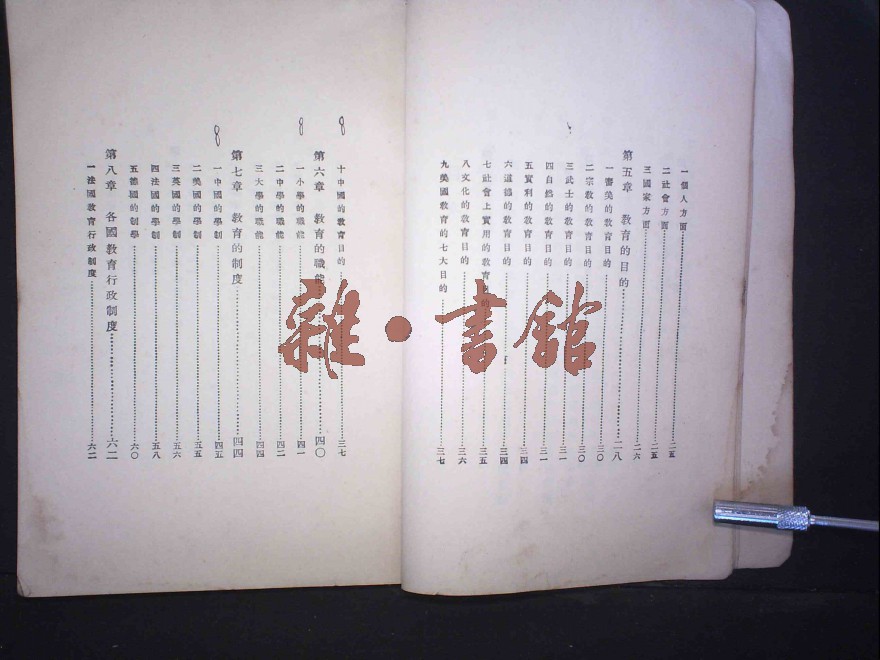 一個人方面 二五
二社會方面 二五
三國家方面 二六
第五章 教育的目的 二八
一審美的教育目的 三〇
二宗教的教育目的 三〇
三武士的教育目的 三一
四自然的教育目的 三一
五實利的教育目的 三四
六道德的教育目的 三四
七社會上實用的教育目的 三五
八文化的教育目的 三六
九美國教育的七大目的 三七
十中國的教育目的 三七
第六章 教育的職能 四〇
一小學的職能 四一
二中學的職能 四二
三大學的職能 四四
第七章 教育的制度 四四
一中國的學制 四五
二美國的學制 五五
三英國的學制 五六
四法國的學制 五八
五德國的制學 六〇
第八章 各國教育行政制度 六二
一法國教育行政制度 六二
雜·書館